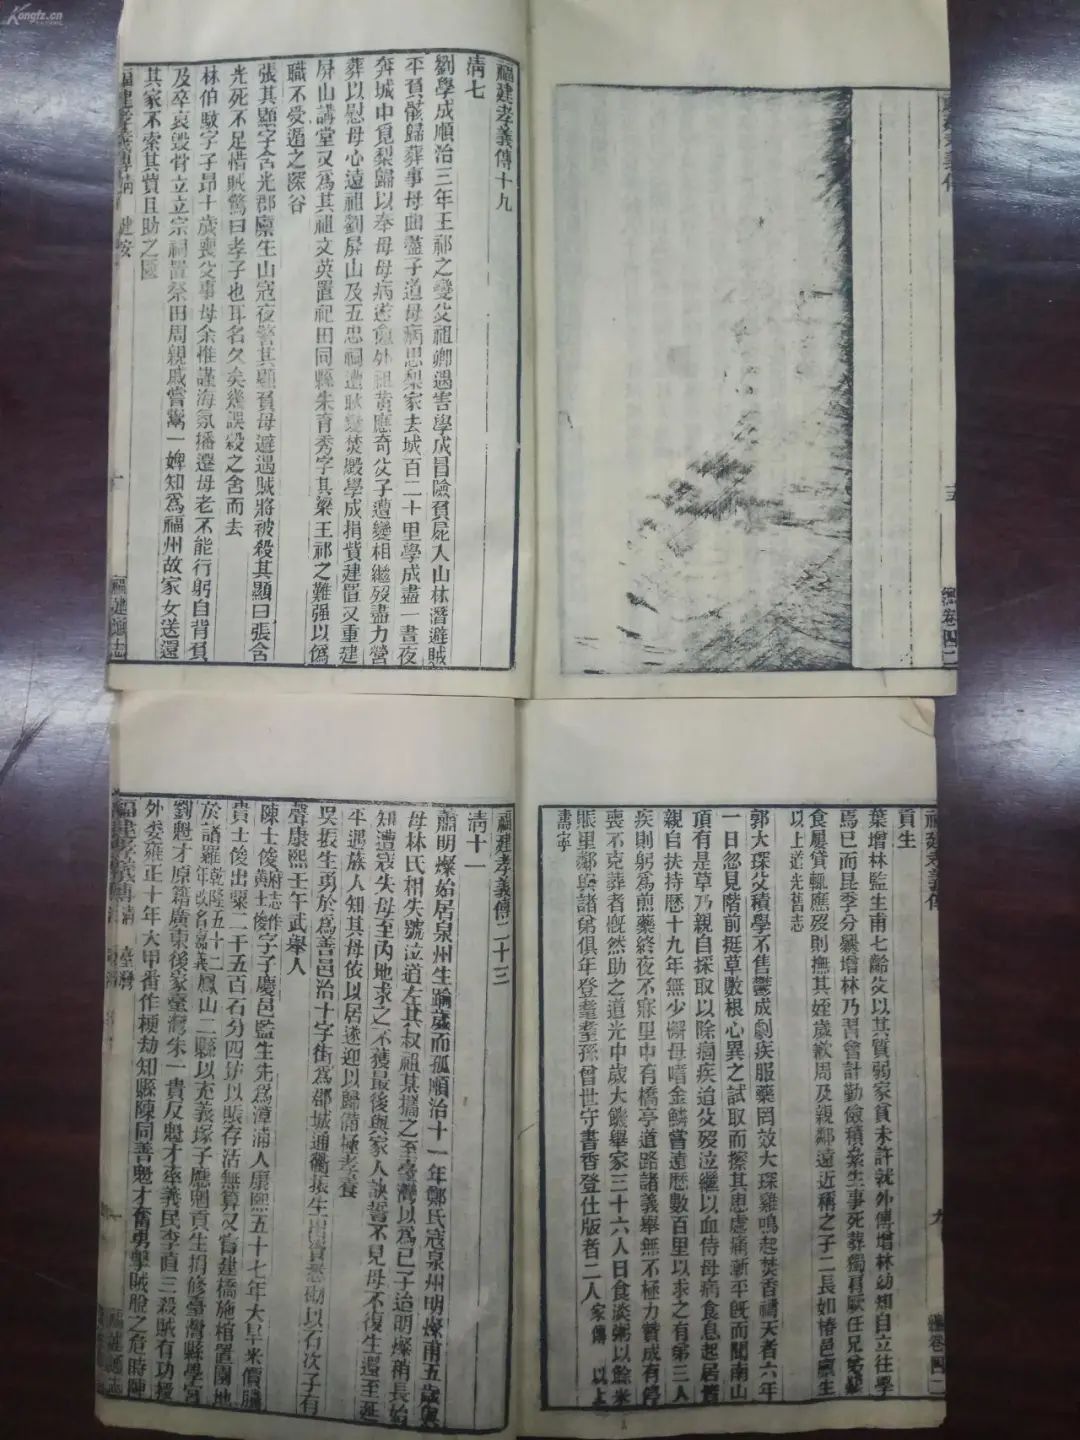 Kongfz.cn
福建孝義傳十九
清七
劉學成順治三年王祁之變父祖卿遇害學成冒險負屍入山林潛避賊
平負骸歸葬事母曲盡子道母病思梨家去城百二十里學成盡一晝夜
奔城中覓梨歸以奉母母病遂愈外祖黃應奇父子遭變相繼歿盡力營
葬以慰母心遠祖劉屏山及五忠祠遭耿變焚燬學成捐貲建置又重建
屏山講堂又爲其祖文英置祀田同縣朱育秀字其梁王祁之難强以僞
職不受遁之深谷
張其顯字含光郡廩生山寇夜警其顯負母避遇賊將被殺其顯曰張含
光死不足惜賊驚曰孝子也耳名久矣幾誤殺之舍而去
林伯駿字子昂十歲喪父事母余惟謹海氛播遷母老不能行躬自背負
及卒哀毀骨立立宗祠置祭田周親戚嘗鬻一婢知爲福州故家女送還
其家不索其貲且助之匳
福建孝義傳 清 建安
福建通志
總卷四二
福建孝義傳二十三
清十一
蕭明燦始居泉州生踰歲而孤順治十一年鄭氏寇泉州明燦甫五歲與
母林氏相失號泣道左其叔祖某攜之至臺灣以爲己子迨明燦稍長始
知遭寇失母至內地求之不獲最後與家人訣誓不見母不復生還至延
平遇族人知其母依以居遂迎以歸諸極孝養
吳振生勇於爲善邑治十字街爲郡城通衢振生出貲砌以石次子有
聲康熙壬午武舉人
陳士俊府志作黃士俊字子慶邑監生先爲漳浦人康熙五十七年大旱米價騰
貴士俊出粟二千五百石分四坊以賑存活無算又嘗建橋施棺置園地
於諸羅乾隆五十二年改名嘉義鳳山二縣以充義塚子應魁貢生捐修臺灣縣學宮
劉魁才原籍廣東後家臺灣朱一貴反魁才率義民李直三殺賊有功授
外委雍正十年大甲番作梗劫知縣陳同善魁才奮勇擊賊脫之危時陣
福建孝義傳 清 臺灣
福建通志
福建孝義傳
九
總卷四二
貢生
葉增林監生甫七齡父以其質弱家貧未許就外傅增林幼知自立往學
焉已而昆季分爨增林乃習會計勤儉積絫生事死葬獨肩厥任兄姑嫠
食屢貸輒應歿則撫其姪歲歉周及親鄰遠近稱之子二長如椿邑廩生
以上道光舊志
郭大琛父積學不售鬱成劇疾服藥罔效大琛雞鳴起焚香禱天者六年
一日忽見階前挺草數根心異之試取而擦其患處痛漸平旣而聞南山
頂有是草乃親自採取以除痼疾迨父歿泣繼以血侍母病食息起居皆
親自扶持歷十九年無少懈母嗜金鱗嘗遠歷數百里以求之有第三人
疾則躬爲煎藥終夜不寐里中有橋亭道路諸義舉無不極力贊成有停
喪不克葬者慨然助之道光中歲大饑舉家三十六人日食淡粥以餘米
賑里鄰與諸弟俱年登耄耋孫曾世守書香登仕版者二人家傳 以上
壽寧